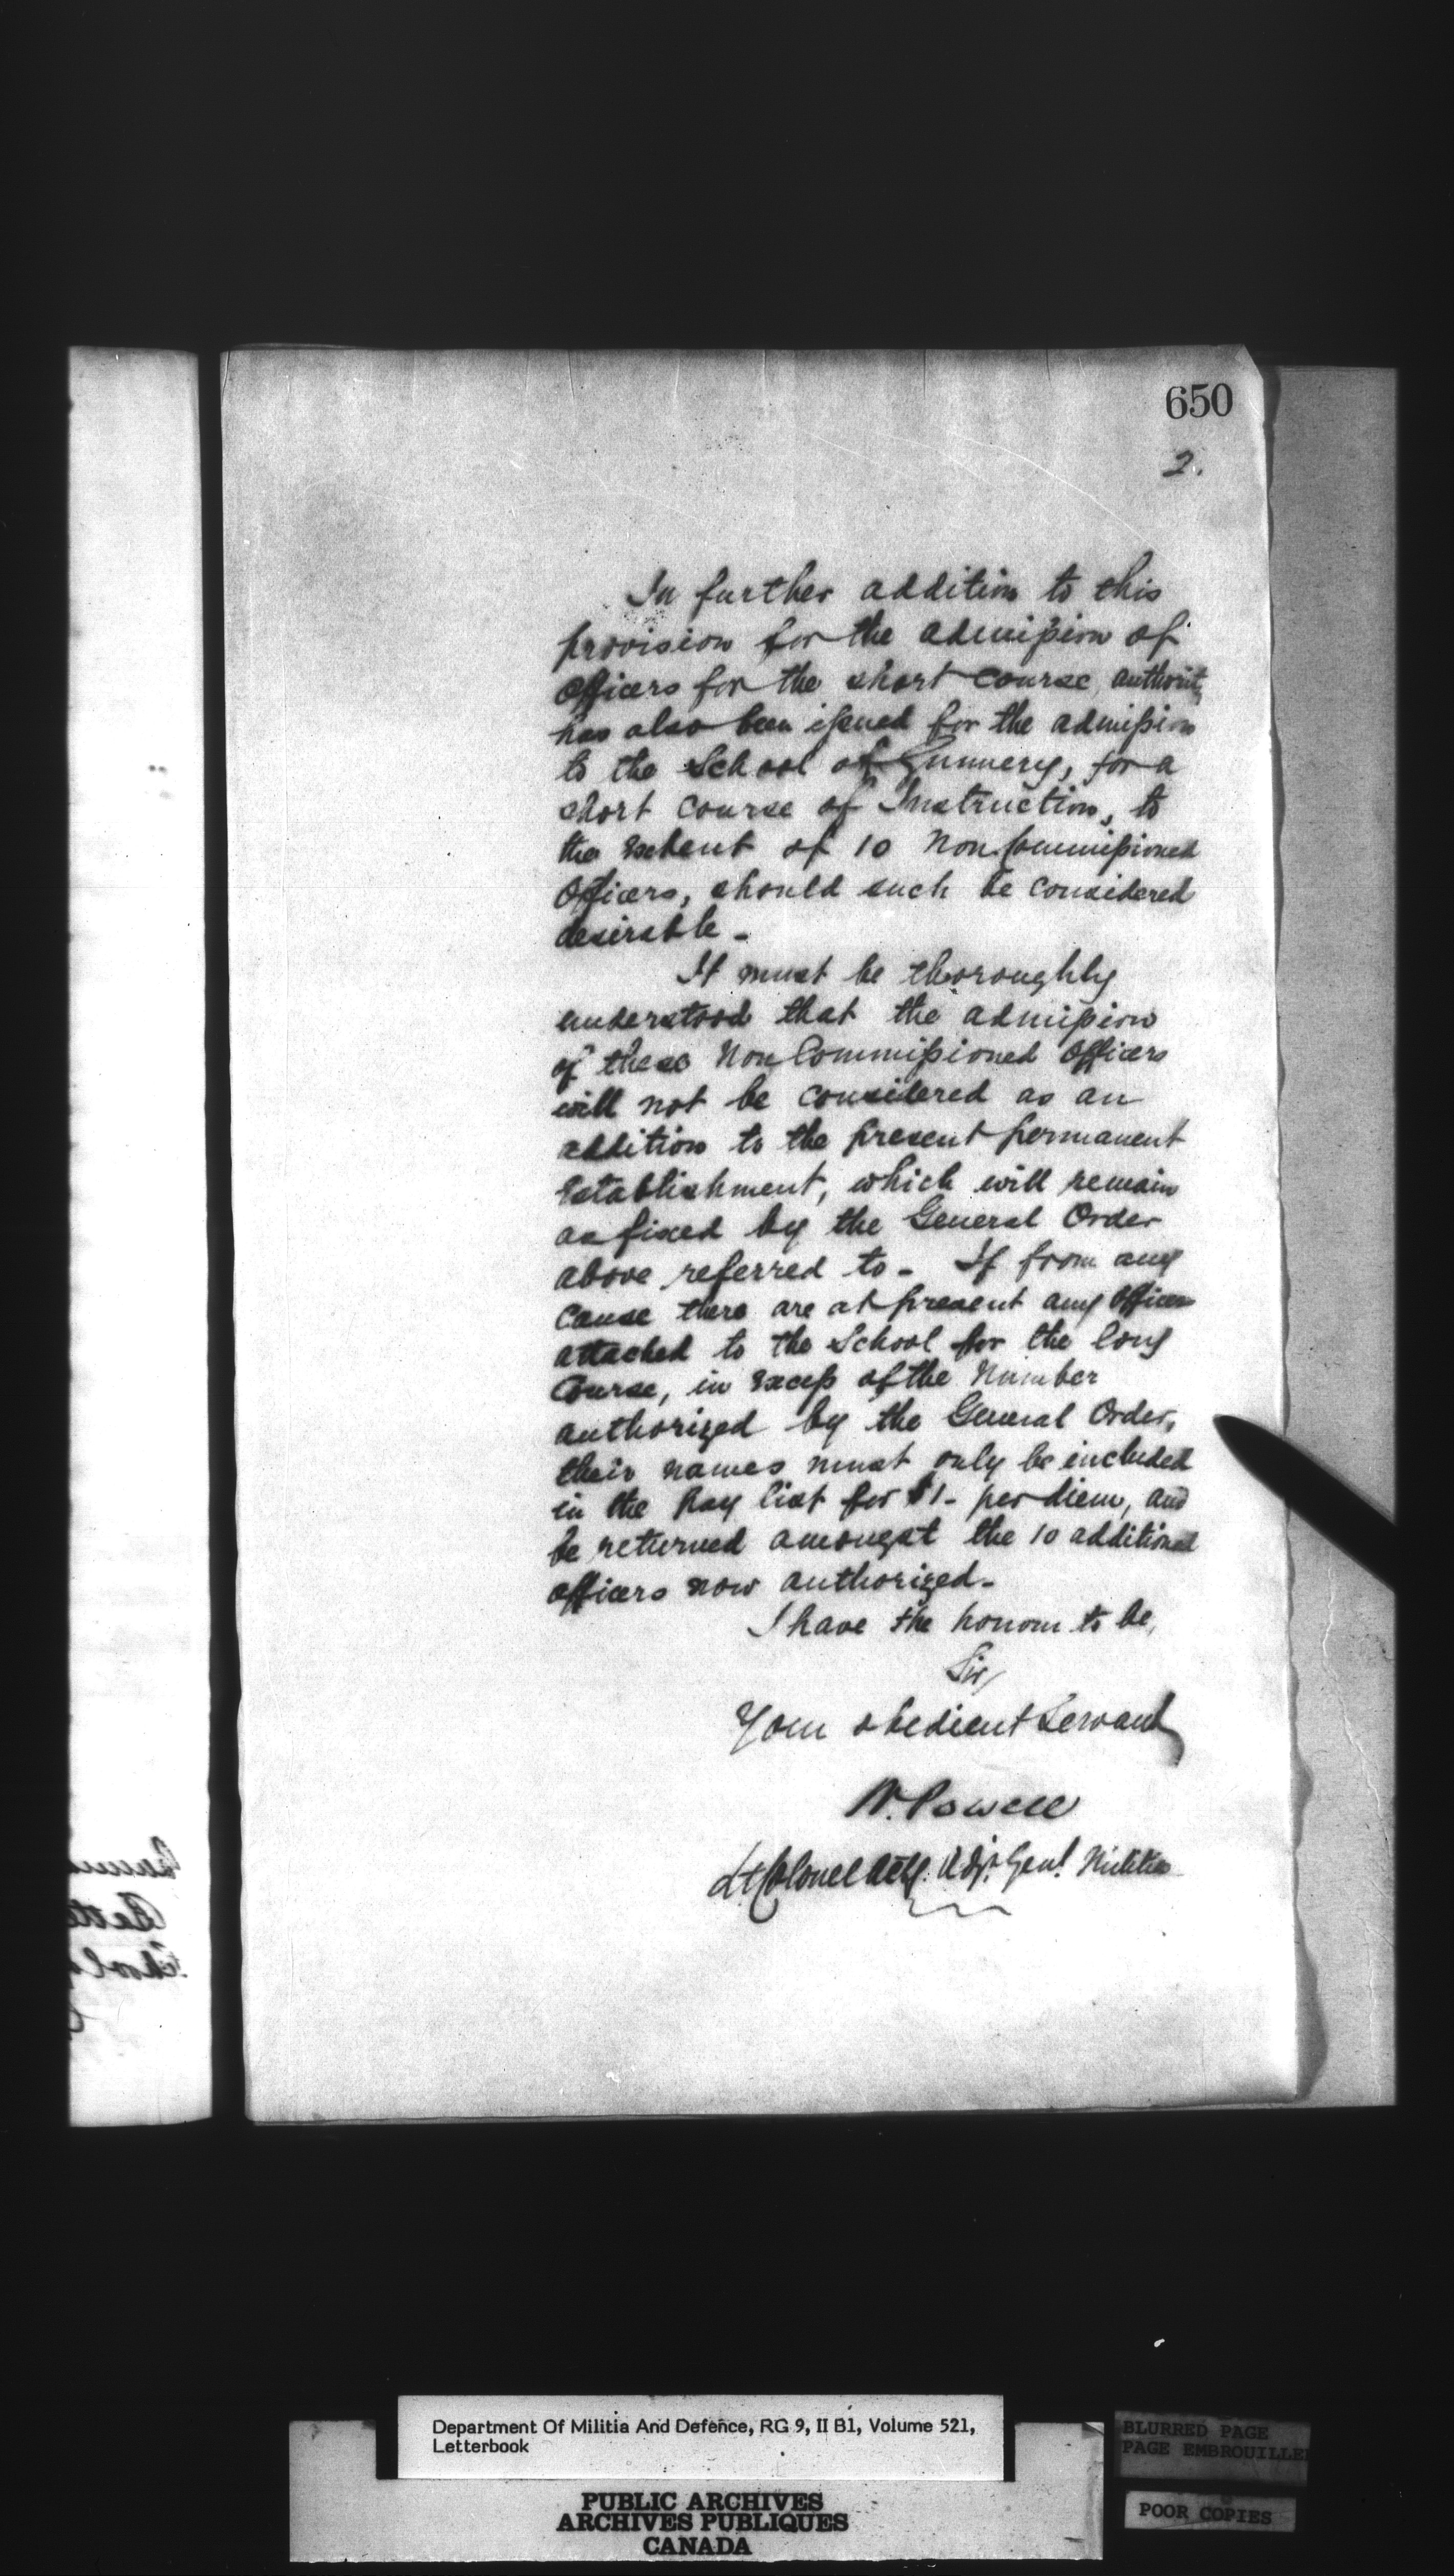 650
2.
In further addition to this
provision for the admission of
Officers for the short course, authority
has also been issued for the admission
to the School of Gunnery, for a
short course of Instruction, to
the Extent of 10 Non Commissioned
Officers, should such be considered
desirable -
It must be thoroughly
understood that the admission
of these Non Commissioned Officers
will not be considered as an
addition to the present permanent
Establishment, which will remain
as fixed by the General Order
above referred to - If from any
cause there are at present any Officers
attached to the School for the long
Course, in Excess of the Number
authorized by the General Order,
their names must only be included
in the Pay list for $1- per diem, and
be returned amongst the 10 additional
officers now authorized -
I have the honour to be,
Sir,
Your obedient Servant
W. Powell
Lt Colonel Actg. Adjt. Genl. Militia
Department Of Militia And Defence, RG 9, II B1, Volume 521,
Letterbook
PUBLIC ARCHIVES
ARCHIVES PUBLIQUES
CANADA
BLURRED PAGE
PAGE EMBROUILLE
POOR COPIES